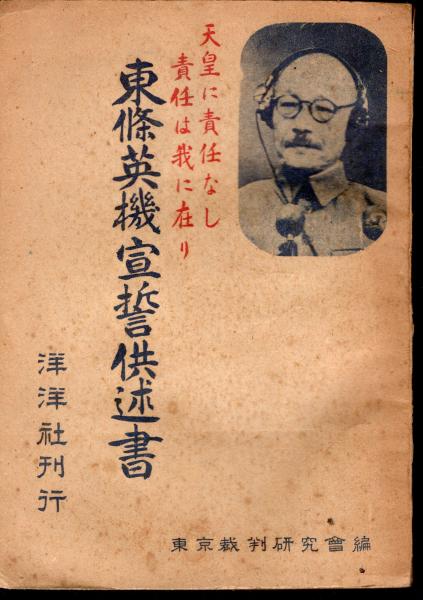 天皇に責任なし
責任は我に在り
東條英機宣誓供述書
洋洋社刊行
東京裁判研究會編